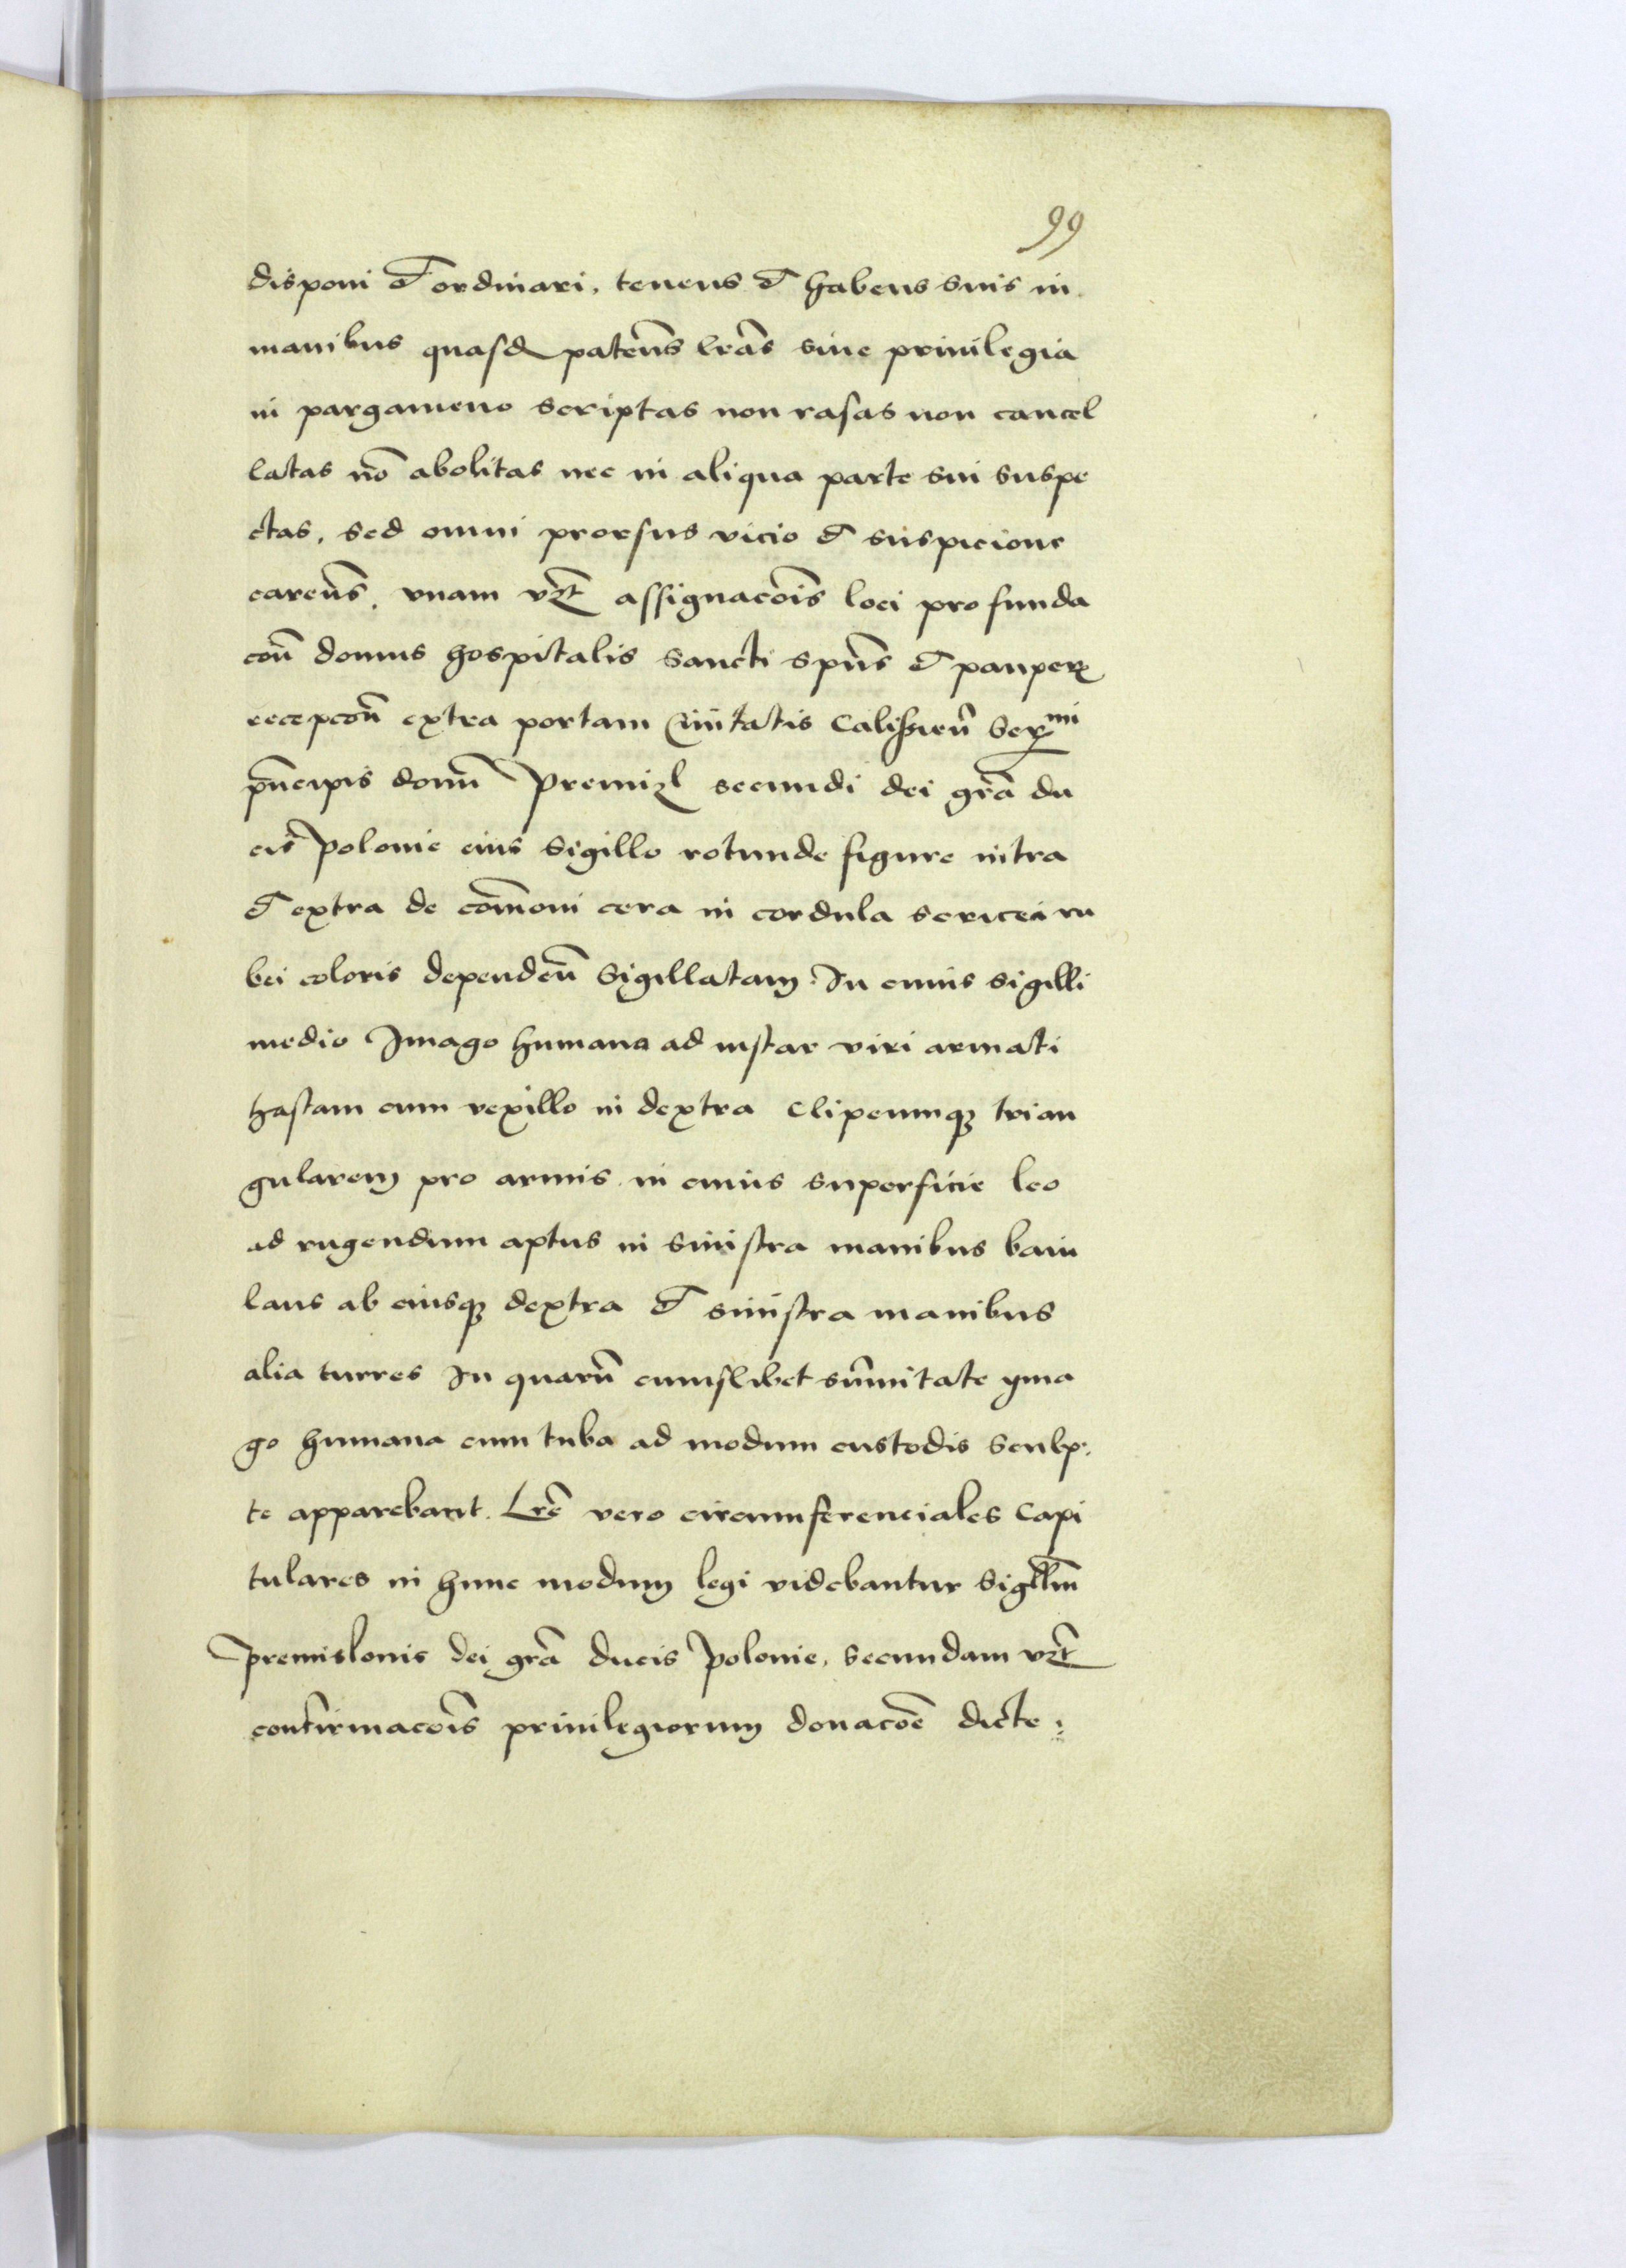 99
disponi et ordinari, tenens et habens suis in
manibus quasd patēns lrās siue priuilegia
in pargameno scriptas non rasas non cancel
latas nō abolitas nec in aliqua parte sui suspe
ctas, sed omni prorsus vicio et suspicione
carēns, vnam vz̄t assignacōis loci pro funda
cōn domus hospitalis Sancti Spūs et pauperꝝ
recepcōn extra portam Ciuitatis Calissieñ Serᵐⁱ
pñcipis domñ Premizl secundi dei grā du
cis Polonie eius Sigillo rotunde figure intra
et extra de cōmoni cera in cordula sericea ru
bei coloris dependeñ Sigillatam. In cuius sigilli
medio Imago humana ad instar viri armati
hastam cum vexillo in dextra Clipeumqꝫ trian
gularem pro armis in cuius superficie leo
ad rugendum aptus in sinistra manibus baiu
lans ab eiusqꝫ dextra et sinistra manibus
alia turres In quarū cuiuslibet sūmitate yma
go humana cum tuba ad modum custodis Sculp:
te apparebant. Lrē vero circumferenciales Capi
tulares in hunc modum legi videbantur Sigillm̄
Premislonis dei grā ducis Polonie, Secundam vz̄t
confirmacōis priuilegiorum donacōē dicte: